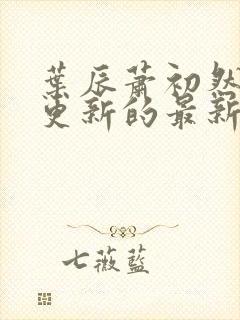 葉辰蕭初然
更新的最新
七薇藍